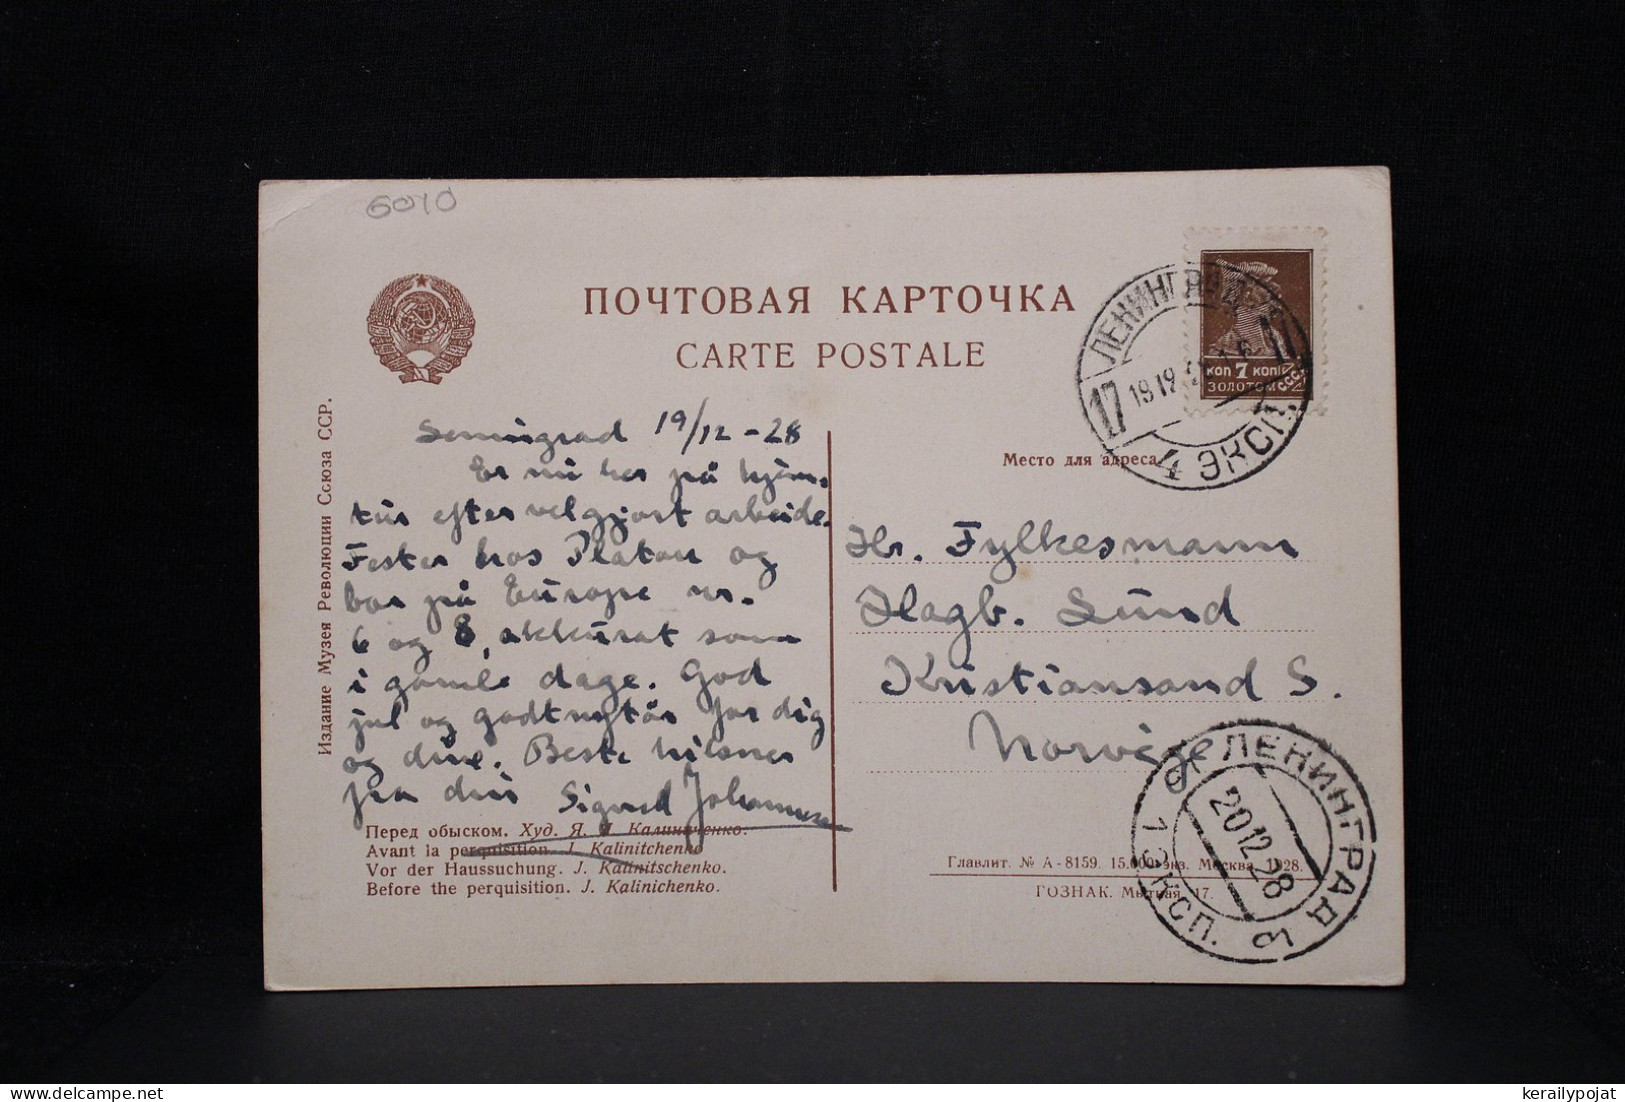 6040
ПОЧТОВАЯ КАРТОЧКА
CARTE POSTALE
ЛЕНИНГРАД
17
4 ЭКСП.
КОП 7 КОП
ЗОЛОТОМ СССР
Место для адреса
Издание Музея Революции Союза ССР.
Leningrad 19/12-28
Er nu her på hjem-
tur efter velgjort arbeide.
Fester hos Platou og
bor på Europe nr.
6 og 8, akkurat som
i gamle dage. God
jul og godt nytår for dig
og dine. Beste hilsner
fra din Sigurd Johannesen
Hr. Fylkesmann
Hagb. Sund
Kristiansand S.
Norvège
Перед обыском. Худ. Я. Я. Калиниченко.
Avant la perquisition. J. Kalinitchenko
Vor der Haussuchung. J. Kalinitschenko.
Before the perquisition. J. Kalinichenko.
Главлит. № А-8159. 15.000 экз. Москва 1928.
ГОЗНАК. Мытная, 17.
ЛЕНИНГРАД
20.12.28
ЭКСП.
kerailypojat